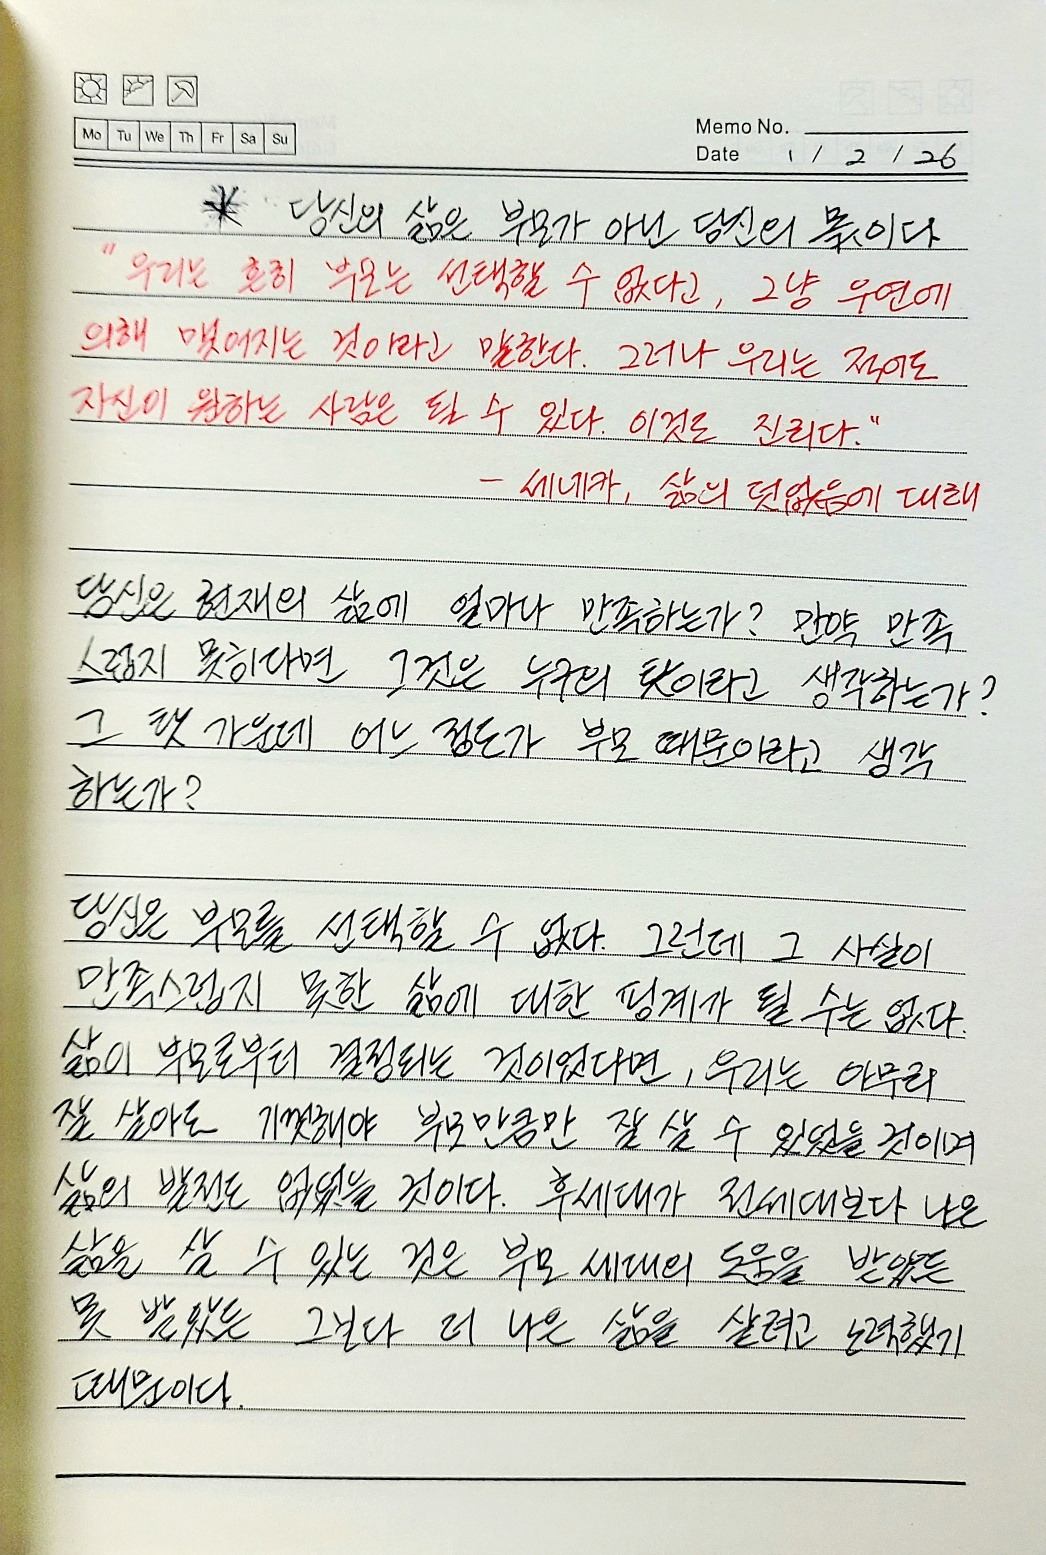 Mo Tu We Th Fr Sa Su
Memo No.
Date 1 / 2 / 26
* 당신의 삶은 부모가 아닌 당신의 몫이다
"우리는 흔히 부모는 선택할 수 없다고, 그냥 우연에
의해 맺어지는 것이라고 말한다. 그러나 우리는 적어도
자신이 원하는 사람은 될 수 있다. 이것도 진리다."
- 세네카, 삶의 덧없음에 대해
당신은 현재의 삶에 얼마나 만족하는가? 만약 만족
스럽지 못하다면 그것은 누구의 탓이라고 생각하는가?
그 탓 가운데 어느 정도가 부모 때문이라고 생각
하는가?
당신은 부모를 선택할 수 없다. 그런데 그 사실이
만족스럽지 못한 삶에 대한 핑계가 될 수는 없다.
삶이 부모로부터 결정되는 것이었다면, 우리는 아무리
잘 살아도 기껏해야 부모만큼만 잘 살 수 있었을 것이며
삶의 발전도 없었을 것이다. 후세대가 전세대보다 나은
삶을 살 수 있는 것은 부모 세대의 도움을 받았든
못 받았든 그보다 더 나은 삶을 살려고 노력했기
때문이다.